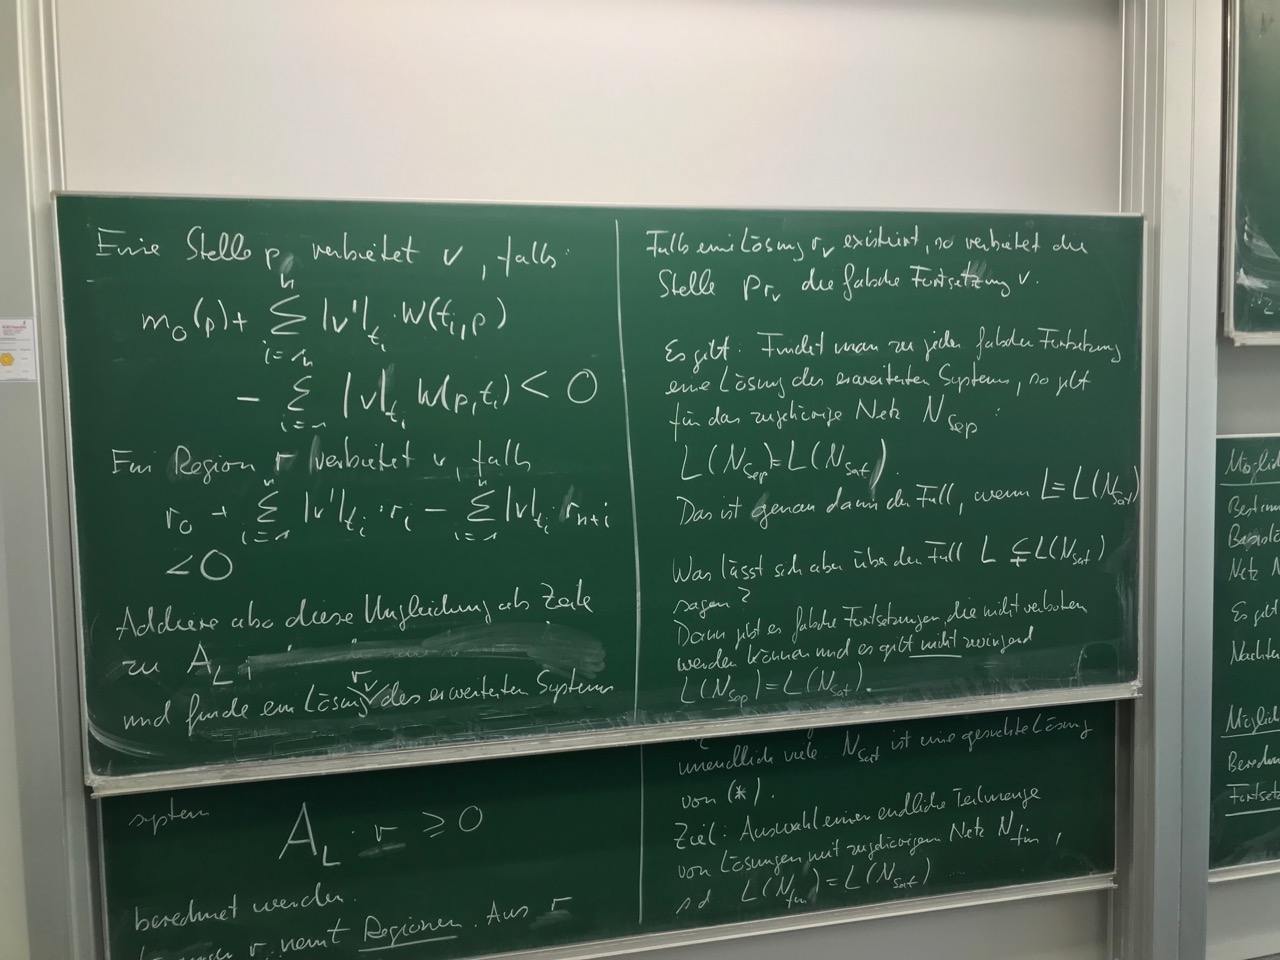 Eine Stelle p verbietet v, falls:
m₀(p) + ∑ᵢ₌₁ⁿ |v'|ₜᵢ · W(tᵢ, p)
− ∑ᵢ₌₁ⁿ |v|ₜᵢ W(p, tᵢ) < 0
Ein Region r verbietet v, falls
r₀ + ∑ᵢ₌₁ⁿ |v'|ₜᵢ · rᵢ − ∑ᵢ₌₁ⁿ |v|ₜᵢ rₙ₊ᵢ
< 0
Addiere also diese Ungleichung als Zeile
zu A_L,
und finde ein Lösung r_v des erweiterten Systems
system
A_L · r ≥ 0
berechnet werden.
r nennt Regionen. Aus r
Falls eine Lösung r_v existiert, so verbietet die
Stelle p_{r_v} die falsche Fortsetzung v.
Es gilt: Findet man zu jeder falschen Fortsetzung
eine Lösung des erweiterten Systems, so gilt
für das zugehörige Netz N_Sep:
L(N_Sep) = L(N_Sat).
Das ist genau dann der Fall, wenn L = L(N_sat)
Was lässt sich aber über den Fall L ⊊ L(N_sat)
sagen?
Dann gibt es falsche Fortsetzungen, die nicht verboten
werden können und es gilt nicht zwingend
L(N_Sep) = L(N_Sat).
unendlich viele. N_sat ist eine gesuchte Lösung
von (*).
Ziel: Auswahl einer endliche Teilmenge
von Lösungen mit zugehörigem Netz N_fin,
sd L(N_fin) = L(N_sat)
Möglich
Bestimm
Basislö
Netz N
Es gilt
Nachtei
Möglich
Berechn
Fortsetz